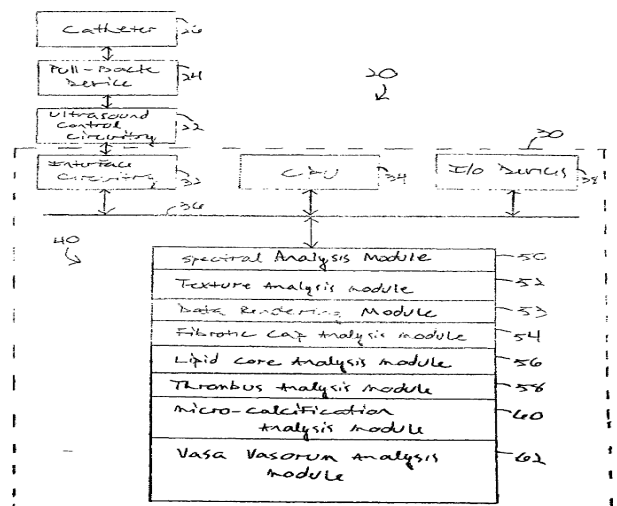 Catheter 26
Pull-Back Device 24
20
Ultrasound Control Circuitry 22
30
Interface Circuitry 32
CPU 34
I/O Devices 38
36
40
Spectral Analysis Module 50
Texture Analysis Module 52
Data Rendering Module 53
Fibrotic Cap Analysis Module 54
Lipid Core Analysis Module 56
Thrombus Analysis Module 58
Micro-calcification Analysis Module 60
Vasa Vasorum Analysis Module 62